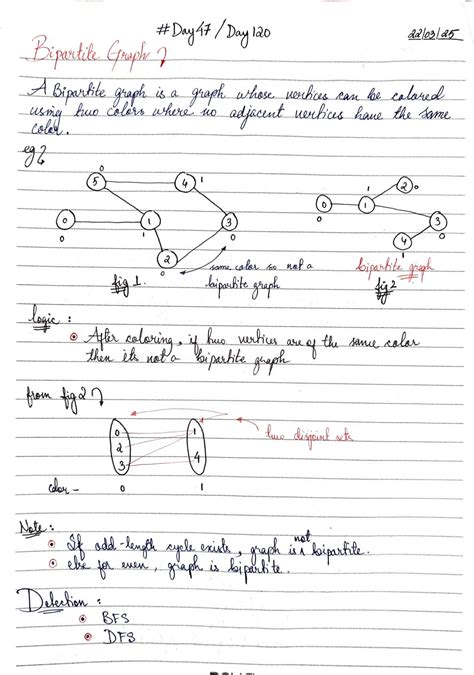 #Day 47 / Day 120
22/03/25
Bipartite Graph
A Bipartite graph is a graph whose vertices can be colored
using two colors where no adjacent vertices have the same
color.
eg
0 1
5 4 2 0
1
0 1 3 0 1 3
0 1 0 0
2 4 0
0 1
same color so not a
bipartite graph
fig 1.
bipartite graph
fig 2
Logic :
After coloring, if two vertices are of the same color
then its not a bipartite graph
from fig 2
0 1
2
3 4
two disjoint sets
color - 0 1
Note :
If odd-length cycle exists, graph is not bipartite.
else for even, graph is bipartite.
Detection :
BFS
DFS